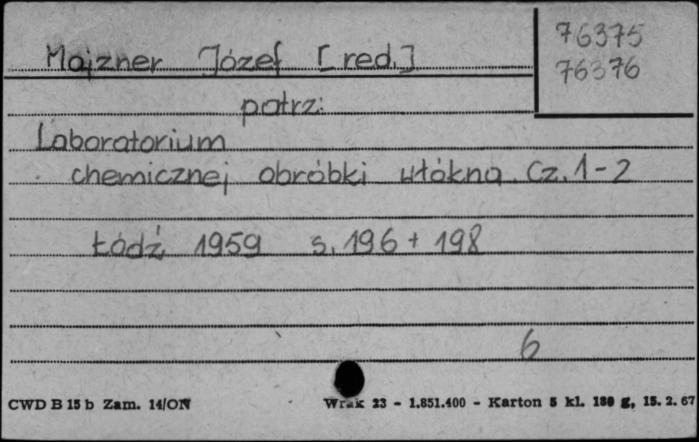 Majzner Józef [red.]
76375
76376
patrz:
Laboratorium
chemicznej obróbki włókna. Cz. 1-2
Łódź, 1959 s. 196 + 198
6
CWD B 15 b Zam. 14/ON
23 - 1.851.400 - Karton 5 kl. 180 g, 15. 2. 67